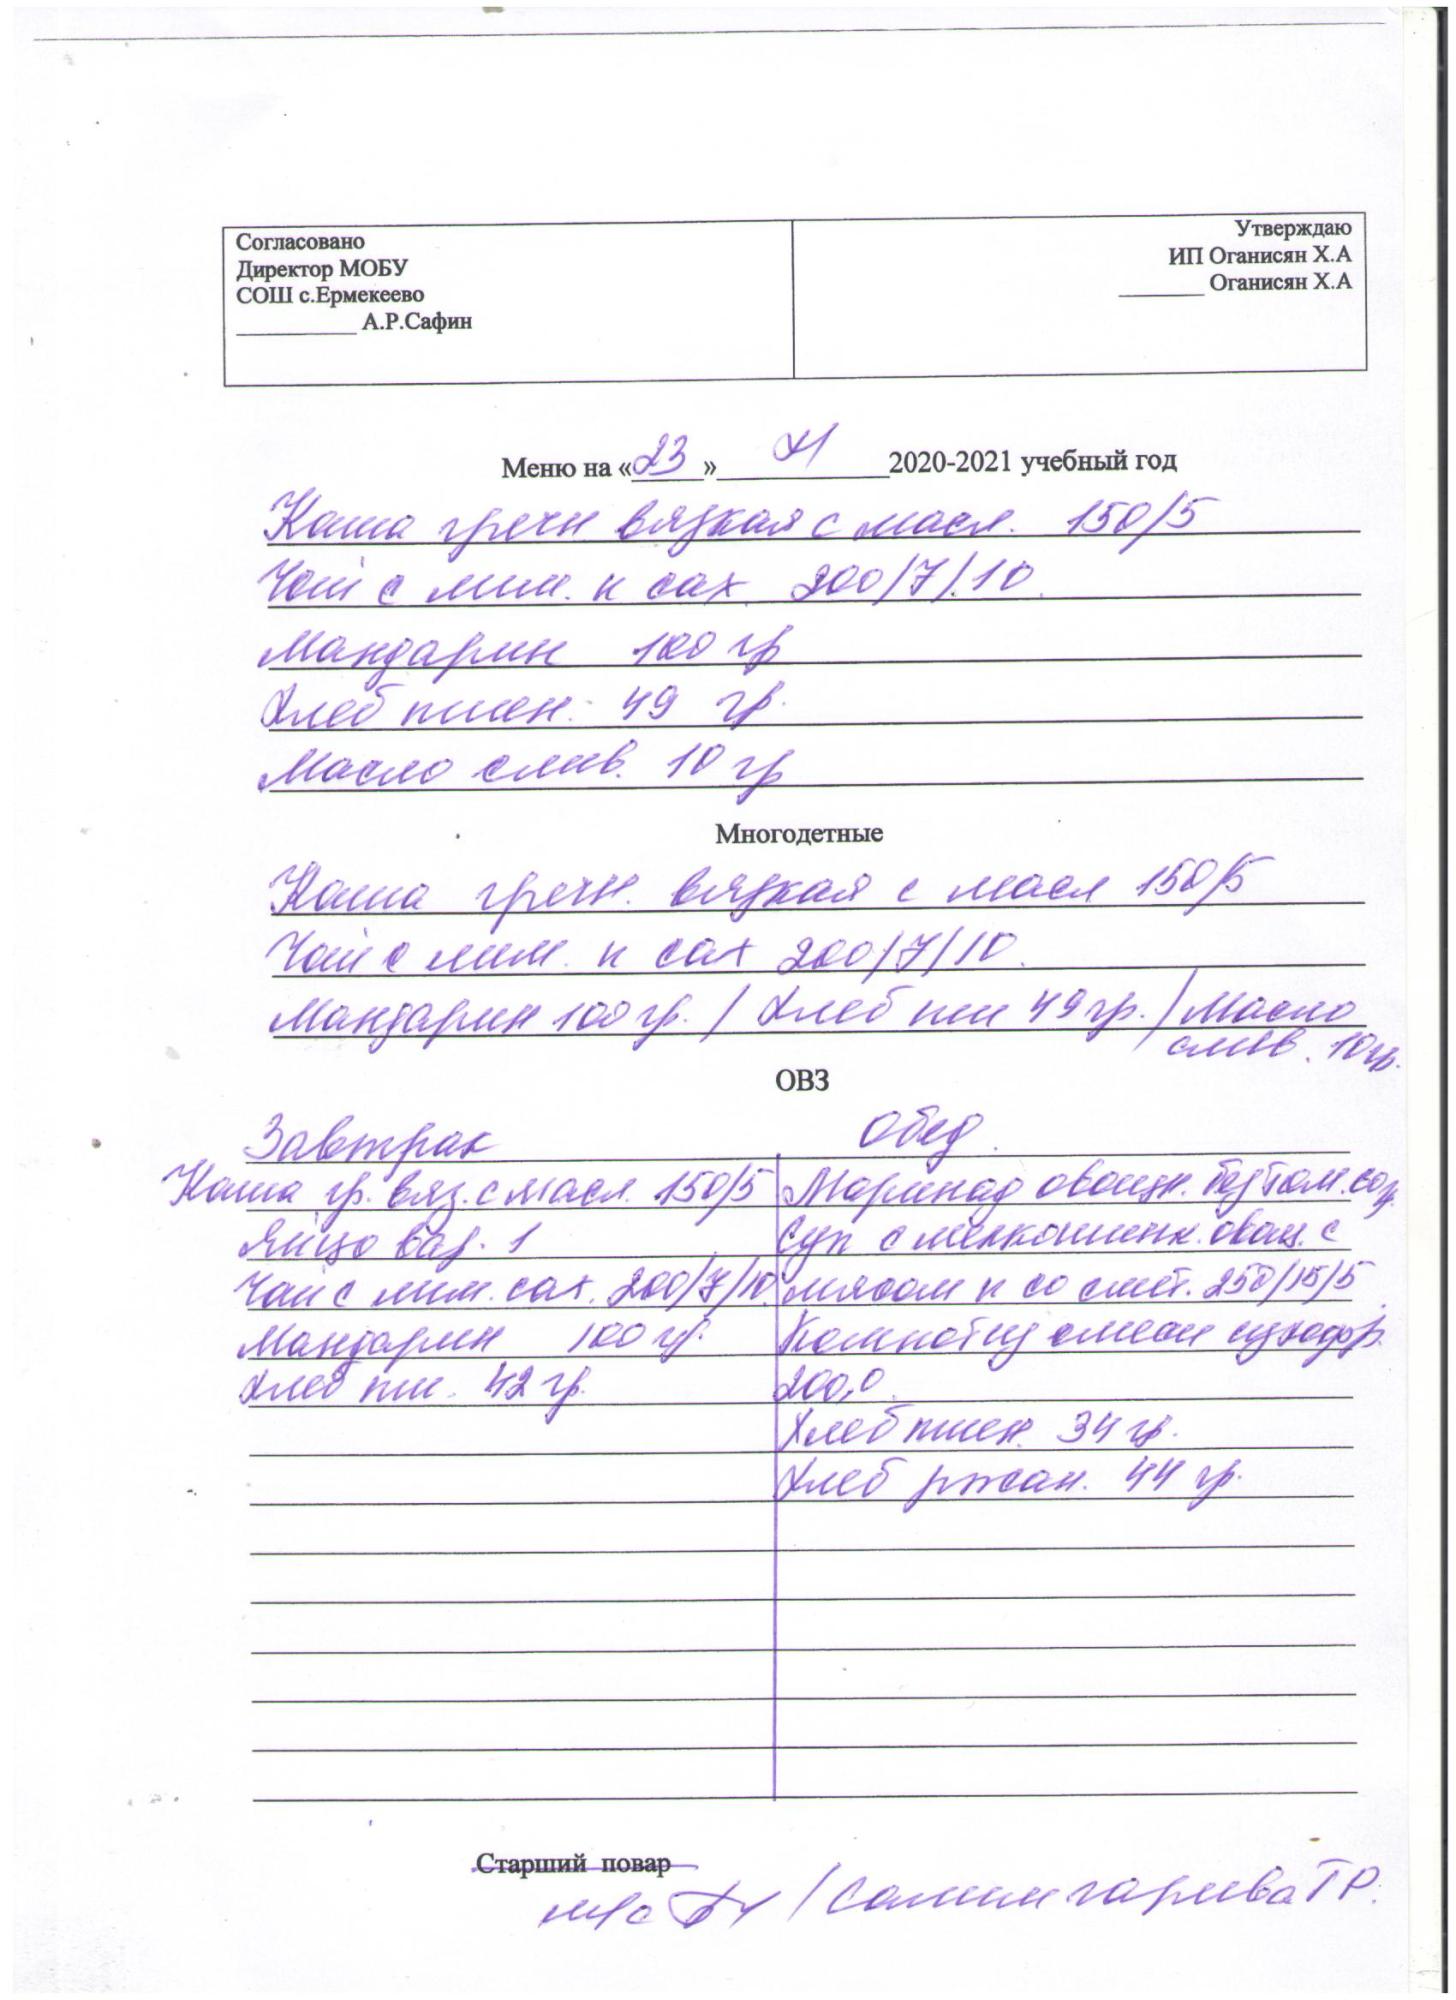 Согласовано
Директор МОБУ
СОШ с.Ермекеево
__________ А.Р.Сафин
Утверждаю
ИП Оганисян Х.А
_______ Оганисян Х.А
Меню на «23» XI 2020-2021 учебный год
Каша гречн вязкая с масл. 150/5
Чай с лим. и сах. 200/7/10.
Мандарин 100 гр
Хлеб пшен. 49 гр.
Масло слив. 10 гр
Многодетные
Каша гречн. вязкая с масл 150/5
Чай с лим. и сах 200/7/10.
Мандарин 100 гр. / Хлеб пш 49 гр. / Масло
слив. 10 гр.
ОВЗ
Завтрак
Каша гр. вяз. с масл. 150/5
Яйцо вар. 1
Чай с лим. сах. 200/7/10.
Мандарин 100 гр.
Хлеб пш. 42 гр.
Обед.
Маринад овощн. без том.
Суп с мелкошинк. овощ. с
мясом и со смет. 250/15/5
Компот из смеси сухофр.
200,0.
Хлеб пшен. 34 гр.
Хлеб ржан. 44 гр.
Старший повар
/ Салимгариева Т Р.